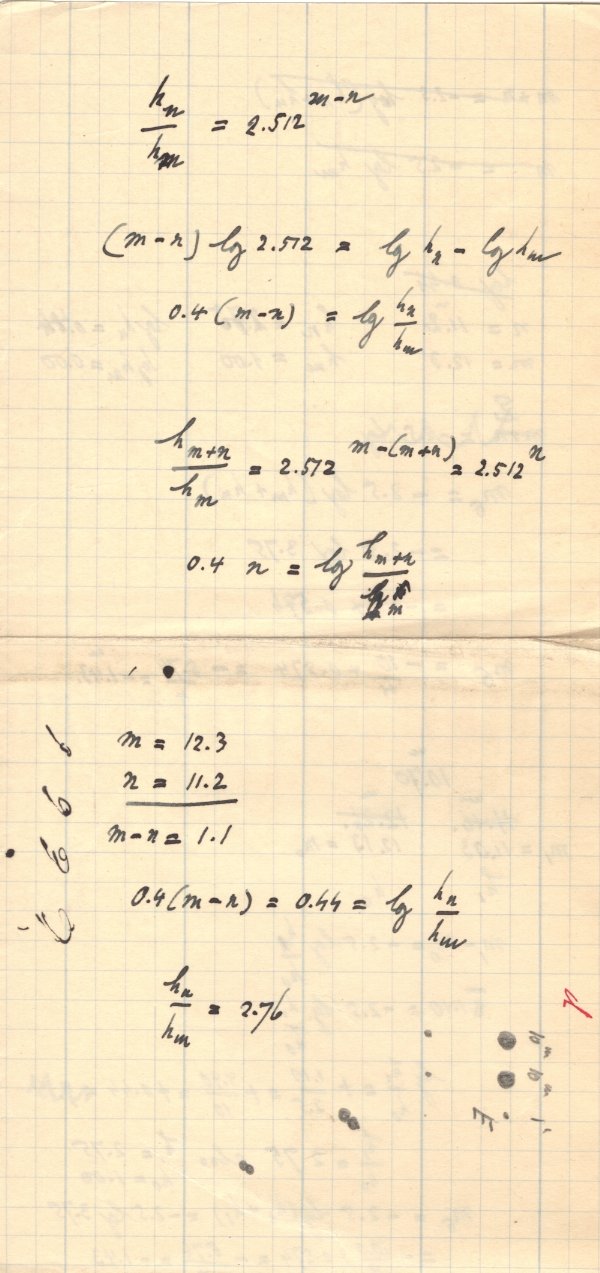 h_n / h_m = 2.512^(m-n)
(m-n) lg 2.512 = lg h_n - lg h_m
0.4 (m-n) = lg h_n / h_m
h_m+n / h_m = 2.512^(m-(m+n)) = 2.512^n
0.4 n = lg h_m+n / h_m
m = 12.3
n = 11.2
m-n = 1.1
0.4 (m-n) = 0.44 = lg h_n / h_m
h_n / h_m = 2.76